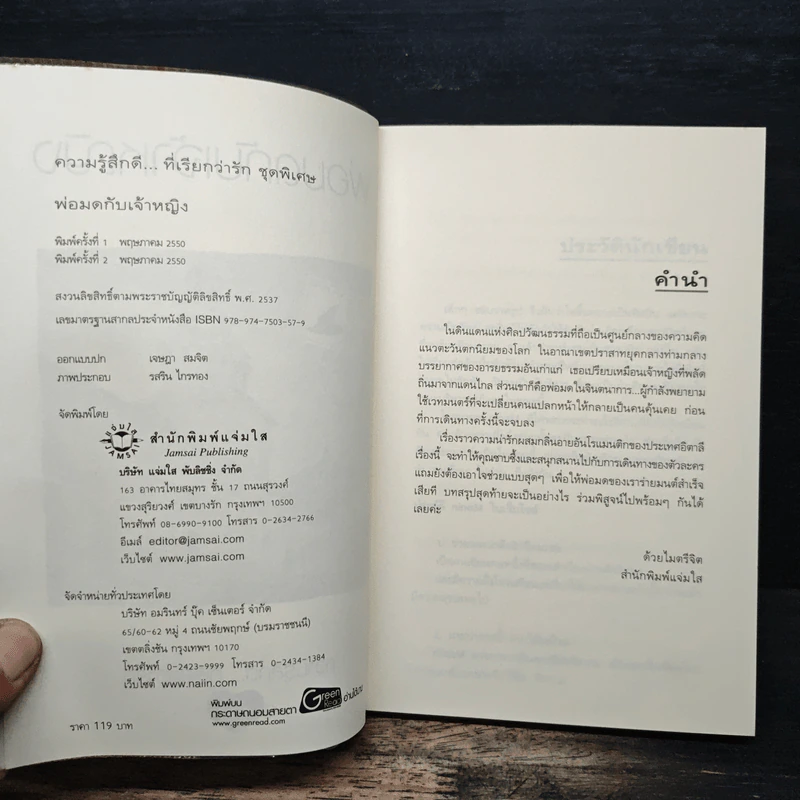 ความรู้สึกดี... ที่เรียกว่ารัก ชุดพิเศษ
พ่อมดกับเจ้าหญิง
พิมพ์ครั้งที่ 1 พฤษภาคม 2550
พิมพ์ครั้งที่ 2 พฤษภาคม 2550
สงวนลิขสิทธิ์ตามพระราชบัญญัติลิขสิทธิ์ พ.ศ. 2537
เลขมาตรฐานสากลประจำหนังสือ ISBN 978-974-7503-57-9
ออกแบบปก เจษฎา สมจิต
ภาพประกอบ รสริน ไกรทอง
จัดพิมพ์โดย
แจ่มใส
JAMSAI
สำนักพิมพ์แจ่มใส
Jamsai Publishing
บริษัท แจ่มใส พับลิชชิ่ง จำกัด
163 อาคารไทยสมุทร ชั้น 17 ถนนสุรวงศ์
แขวงสุริยวงศ์ เขตบางรัก กรุงเทพฯ 10500
โทรศัพท์ 08-6990-9100 โทรสาร 0-2634-2766
อีเมล์ editor@jamsai.com
เว็บไซต์ www.jamsai.com
จัดจำหน่ายทั่วประเทศโดย
บริษัท อมรินทร์ บุ๊ค เซ็นเตอร์ จำกัด
65/60-62 หมู่ 4 ถนนชัยพฤกษ์ (บรมราชชนนี)
เขตตลิ่งชัน กรุงเทพฯ 10170
โทรศัพท์ 0-2423-9999 โทรสาร 0-2434-1384
เว็บไซต์ www.naiin.com
พิมพ์บน
กระดาษถนอมสายตา
www.greenread.com
Green
Read
ราคา 119 บาท
คำนำ
ในดินแดนแห่งศิลปวัฒนธรรมที่ถือเป็นศูนย์กลางของความคิด
แนวตะวันตกนิยมของโลก ในอาณาเขตปราสาทยุคกลางท่ามกลาง
บรรยากาศของอารยธรรมอันเก่าแก่ เธอเปรียบเหมือนเจ้าหญิงที่พลัด
ถิ่นมาจากแดนไกล ส่วนเขาก็คือพ่อมดในจินตนาการ...ผู้กำลังพยายาม
ใช้เวทมนตร์ที่จะเปลี่ยนคนแปลกหน้าให้กลายเป็นคนคุ้นเคย ก่อน
ที่การเดินทางครั้งนี้จะจบลง
เรื่องราวความน่ารักผสมกลิ่นอายอันโรแมนติกของประเทศอิตาลี
เรื่องนี้ จะทำให้คุณซาบซึ้งและสนุกสนานไปกับการเดินทางของตัวละคร
แถมยังต้องเอาใจช่วยแบบสุดๆ เพื่อให้พ่อมดของเราร่ายมนต์สำเร็จ
เสียที บทสรุปสุดท้ายจะเป็นอย่างไร ร่วมพิสูจน์ไปพร้อมๆ กันได้
เลยค่ะ
ด้วยไมตรีจิต
สำนักพิมพ์แจ่มใส